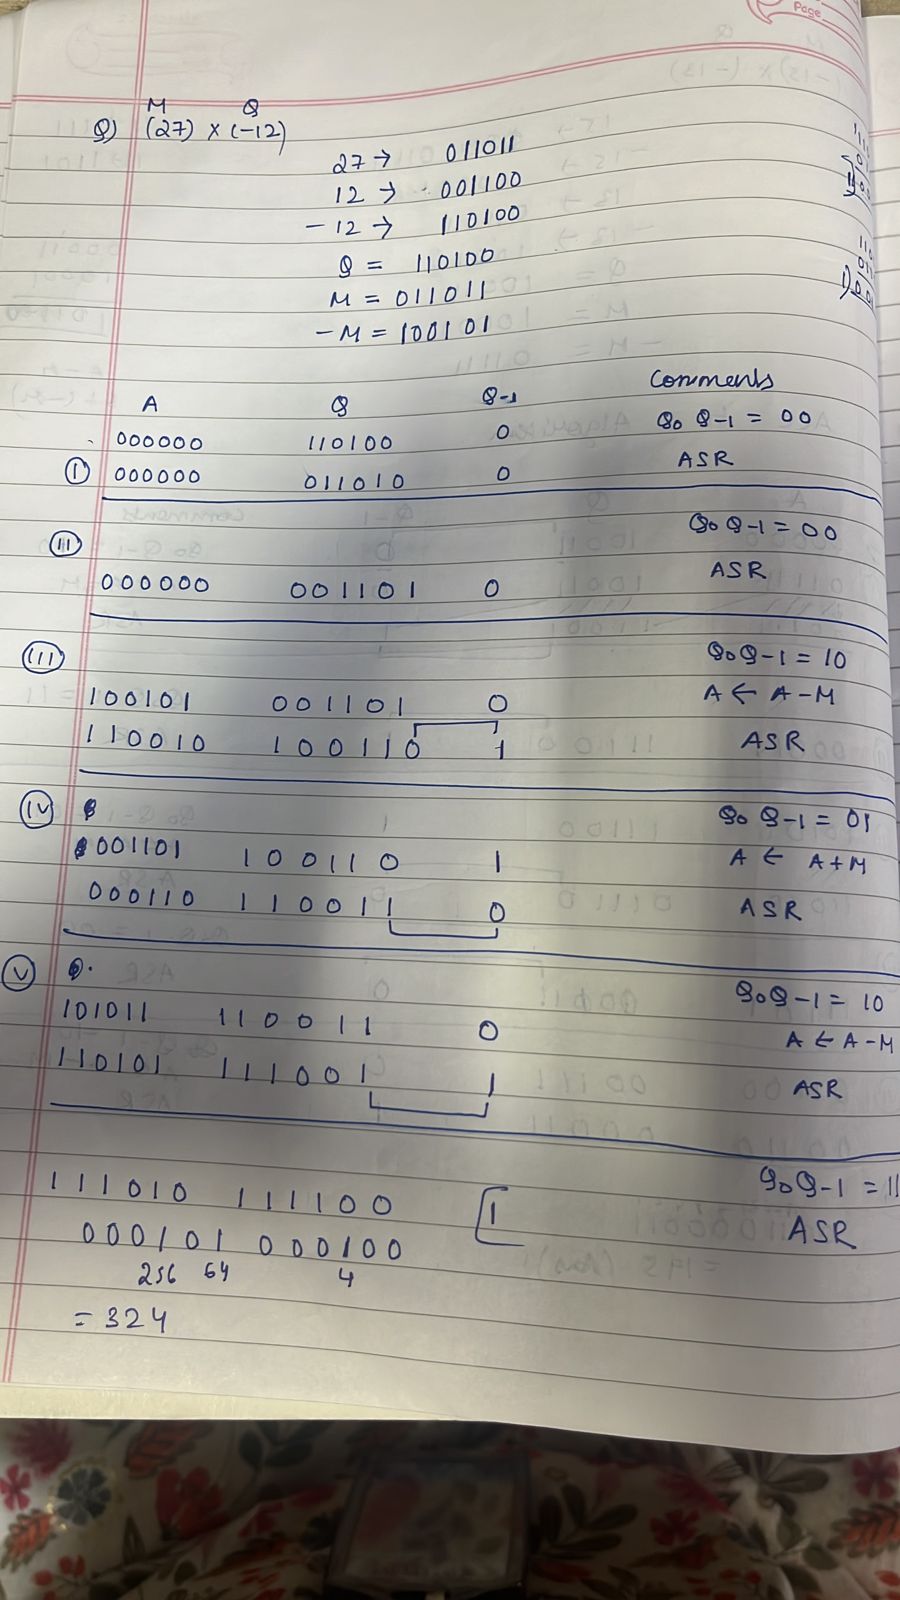 Page
M Q
Q) (27) x (-12)
27 → 011011
12 → 001100
-12 → 110100
Q = 110100
M = 011011
-M = 100101
A Q Q-1 Comments
000000 110100 0 Q0 Q-1 = 00
(I) 000000 011010 0 ASR
(II) Q0 Q-1 = 00
000000 001101 0 ASR
(III) Q0Q-1 = 10
100101 001101 0 A ← A-M
110010 100110 1 ASR
(IV) Q0 Q-1 = 01
001101 100110 1 A ← A+M
000110 110011 0 ASR
(V) Q0Q-1 = 10
101011 110011 0 A ← A-M
110101 111001 1 ASR
Q0Q-1 = 11
111010 111100 1 ASR
000101 000100
256 64 4
= 324